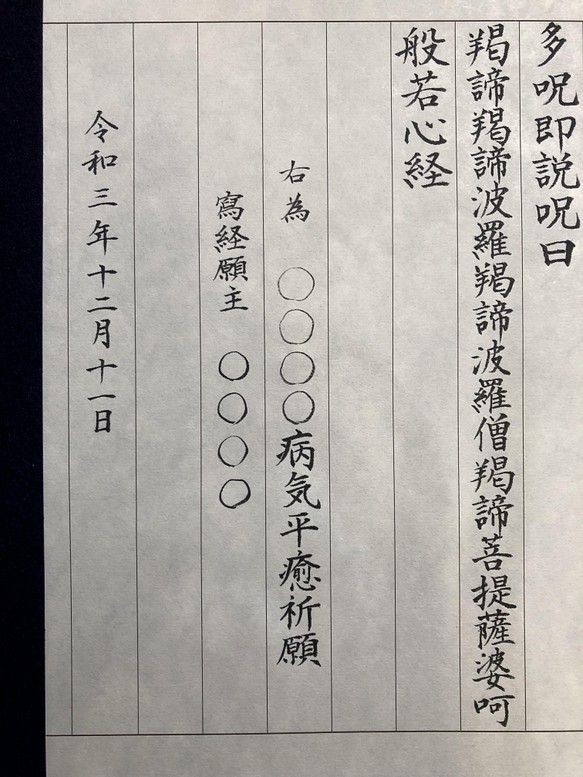 多呪即説呪曰
羯諦羯諦波羅羯諦波羅僧羯諦菩提薩婆呵
般若心経
右為 〇〇〇〇病気平癒祈願
寫経願主 〇〇〇〇
令和三年十二月十一日